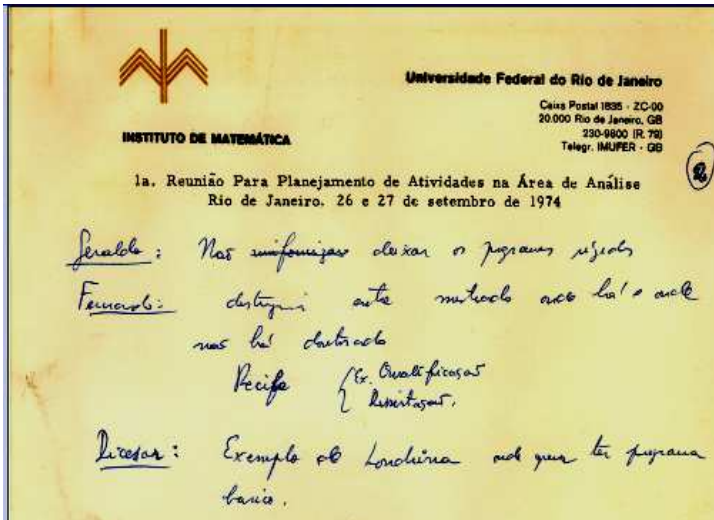 Universidade Federal do Rio de Janeiro
Caixa Postal 1835 - ZC-00
20.000 Rio de Janeiro, GB
230-9800 (R. 79)
Telegr. IMUFER - GB
INSTITUTO DE MATEMÁTICA
2
1a. Reunião Para Planejamento de Atividades na Área de Análise
Rio de Janeiro. 26 e 27 de setembro de 1974
Geraldo: Não uniformizar deixar os programas rígidos
Fernando: distinguir entre mestrado onde há e onde
não há doutorado
Recife Ex. Qualificação
Dissertação.
Dicesar: Exemplo de Londrina onde quer ter programa
basico.